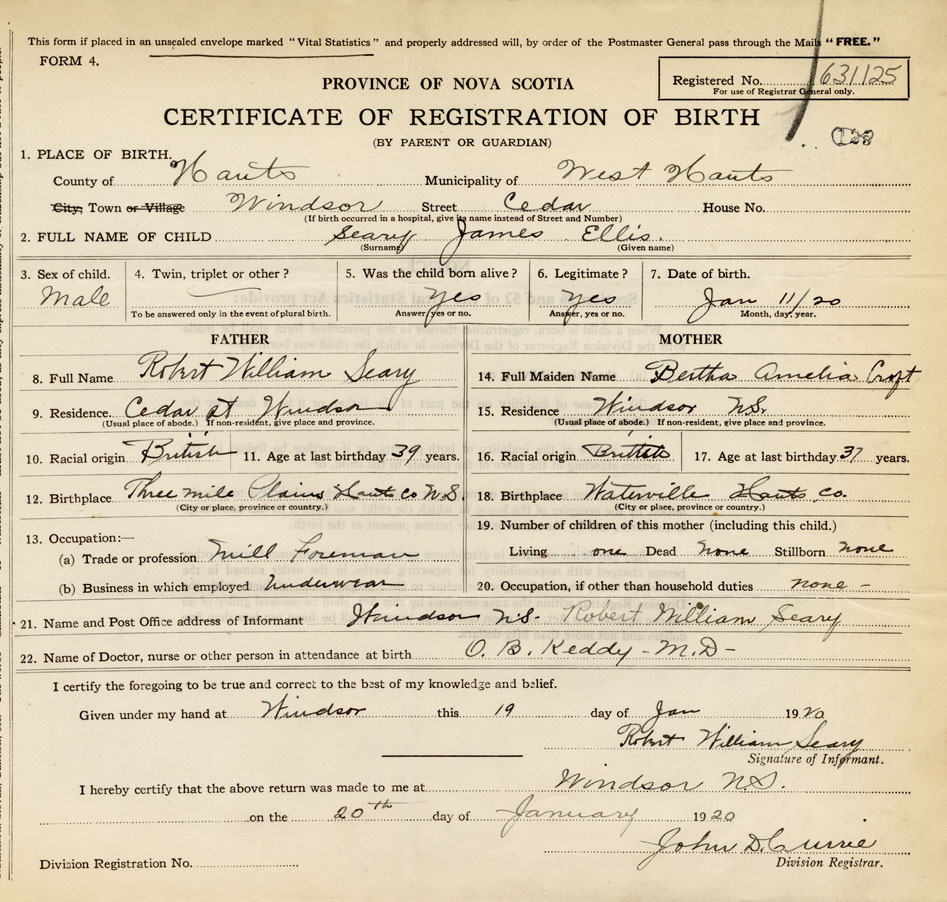 This form if placed in an unsealed envelope marked "Vital Statistics" and properly addressed will, by order of the Postmaster General pass through the Mails "FREE."
FORM 4.
Registered No. 631125
For use of Registrar General only.
PROVINCE OF NOVA SCOTIA
CERTIFICATE OF REGISTRATION OF BIRTH
(BY PARENT OR GUARDIAN)
1. PLACE OF BIRTH.
County of Hants Municipality of West Hants
City; Town or Village Windsor Street Cedar House No.
(If birth occurred in a hospital, give its name instead of Street and Number)
2. FULL NAME OF CHILD Seary James Ellis.
(Surname) (Given name)
3. Sex of child. 4. Twin, triplet or other? 5. Was the child born alive? 6. Legitimate? 7. Date of birth.
Male Yes Yes Jan 11/20
To be answered only in the event of plural birth. Answer, yes or no. Answer, yes or no. Month, day, year.
FATHER MOTHER
8. Full Name Robert William Seary 14. Full Maiden Name Bertha Amelia Croft
9. Residence. Cedar St Windsor 15. Residence Windsor N.S.
(Usual place of abode.) If non-resident, give place and province. (Usual place of abode.) If non-resident, give place and province.
10. Racial origin British 11. Age at last birthday 39 years. 16. Racial origin British 17. Age at last birthday 37 years.
12. Birthplace Three mile Plains Hants Co N.S. 18. Birthplace Waterville Hants Co.
(City or place, province or country.) (City or place, province or country.)
19. Number of children of this mother (including this child.)
13. Occupation:—
(a) Trade or profession Mill Foreman Living one Dead None Stillborn none
(b) Business in which employed Underwear 20. Occupation, if other than household duties none -
21. Name and Post Office address of Informant Windsor N.S- Robert William Seary
22. Name of Doctor, nurse or other person in attendance at birth O. B. Keddy - M.D -
I certify the foregoing to be true and correct to the best of my knowledge and belief.
Given under my hand at Windsor this 19 day of Jan 1920
Robert William Seary
Signature of Informant.
I hereby certify that the above return was made to me at Windsor N.S.
on the 20th day of January 1920
John D. Currie
Division Registration No. Division Registrar.